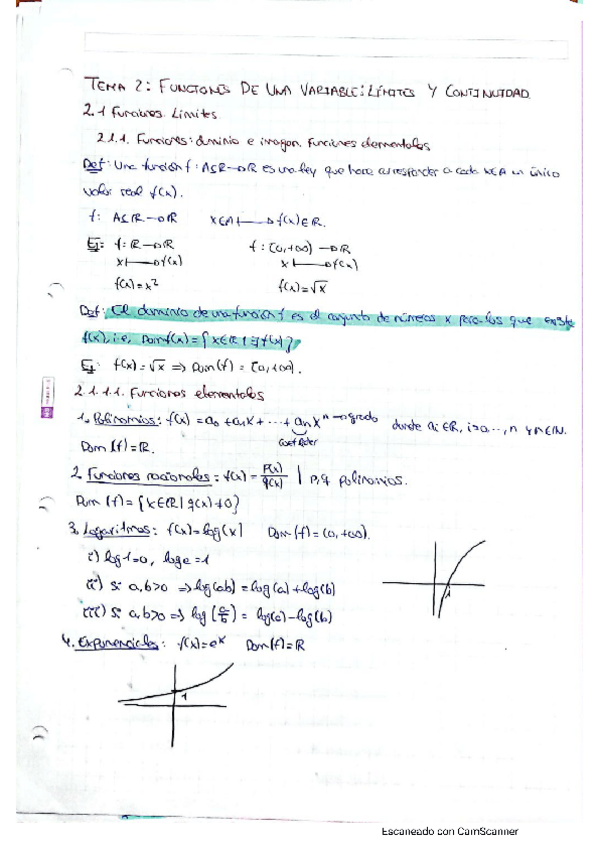 TEMA 2: FUNCIONES DE UNA VARIABLE: LÍMITES Y CONTINUIDAD.
2.1 Funciones. Límites.
2.1.1. Funciones: dominio e imagen. Funciones elementales
Def: Una función f: A⊆R→R es una ley que hace corresponder a cada x∈A un único
valor real f(x).
f: A⊆R→R x∈A↦f(x)∈R.
Ej: f: R→R f: [0,+∞)→R
x↦f(x) x↦f(x)
f(x)=x² f(x)=√x
Def: El dominio de una función f es el conjunto de números x para los que existe
f(x), i.e, Dom f(x)={x∈R | ∃f(x)}
Ej: f(x)=√x ⇒ Dom(f)=[0,+∞).
2.1.1.1. Funciones elementales
1. Polinomios: f(x)=a₀+a₁x+⋯+aₙxⁿ→grado donde aᵢ∈R, i=0,…,n y n∈N.
Dom(f)=R.
2. Funciones racionales: f(x)=p(x)/q(x) | p,q polinomios.
Dom(f)={x∈R | q(x)≠0}
3. Logaritmos: f(x)=log(x) Dom(f)=(0,+∞).
i) log1=0, loge=1
ii) Si a,b>0 ⇒ log(ab)=log(a)+log(b)
1
iii) Si a,b>0 ⇒ log(a/b)=log(a)-log(b)
4. Exponenciales: f(x)=eˣ Dom(f)=R
1
Escaneado con CamScanner